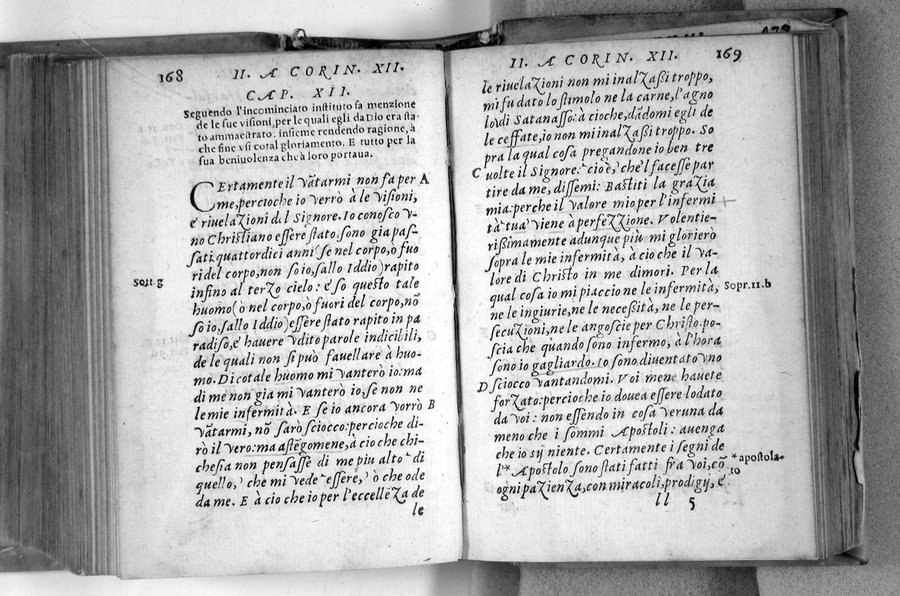 168
II. A CORIN. XII.
CAP. XII.
Seguendo l'incominciato instituto fa menzione
de le sue visioni, per le quali egli da Dio era sta-
to ammaestrato. insieme rendendo ragione, à
che fine vsi cotal gloriamento. E tutto per la
sua beniuolenza che à loro portaua.
CErtamente il vātarmi non fa per A
me, percioche io verrò à le visioni,
e riuelaZioni del Signore. Io conosco v-
no Christiano essere stato, sono gia pas-
sati quattordici anni (se nel corpo, ò fuo
ri del corpo, non so io, sallo Iddio) rapito
Sott. g
infino al terZo cielo: é so questo tale
huomo (ò nel corpo, ò fuori del corpo, nō
so io, sallo Iddio) essere stato rapito in pa
radiso, é hauere vdito parole indicibili,
de le quali non si può fauellare à huo-
mo. Di cotale huomo mi vanterò io: ma
di me non gia mi vanterò io, se non ne
le mie infermità. E se io ancora vorrò B
vātarmi, nō sarò sciocco: percioche di-
rò il vero: ma astēgomene, à cio che chi-
chesia non pensasse di me piu alto di
quello, che mi vede essere, ò che ode
da me. E à cio che io per l'eccelleZa de
le
II. A CORIN. XII.
169
le riuelaZioni non mi inalZaßi troppo,
mi fu dato lo stimolo ne la carne, l'agno
lo di Satanasso: à cioche, dādomi egli de
le ceffate, io non mi inalZaßi troppo. So
pra la qual cosa pregandone io ben tre
C uolte il Signore: cioè, che'l facesse par
tire da me, dissemi: Bastiti la graZia
mia: perche il valore mio per l'infermi
tà tua viene à perfeZZione. Volentie-
rißimamente adunque più mi glorierò
sopra le mie infermità, à cio che il va-
lore di Christo in me dimori. Per la
qual cosa io mi piaccio ne le infermità,
Sopr. 11. b
ne le ingiurie, ne le necessità, ne le per-
secuZioni, ne le angoscie per Christo. po-
scia che quando sono infermo, à l'hora
sono io gagliardo. Io sono diuentato uno
D sciocco vantandomi. Voi mene hauete
forZato: percioche io douea essere lodato
da voi: non essendo in cosa veruna da
meno che i sommi Apostoli: auenga
che io sij niente. Certamente i segni de
l'* Apostolo sono stati fatti fra voi, cō
* apostola-
to
ogni paZienZa, con miracoli, prodigij, é
ll 5